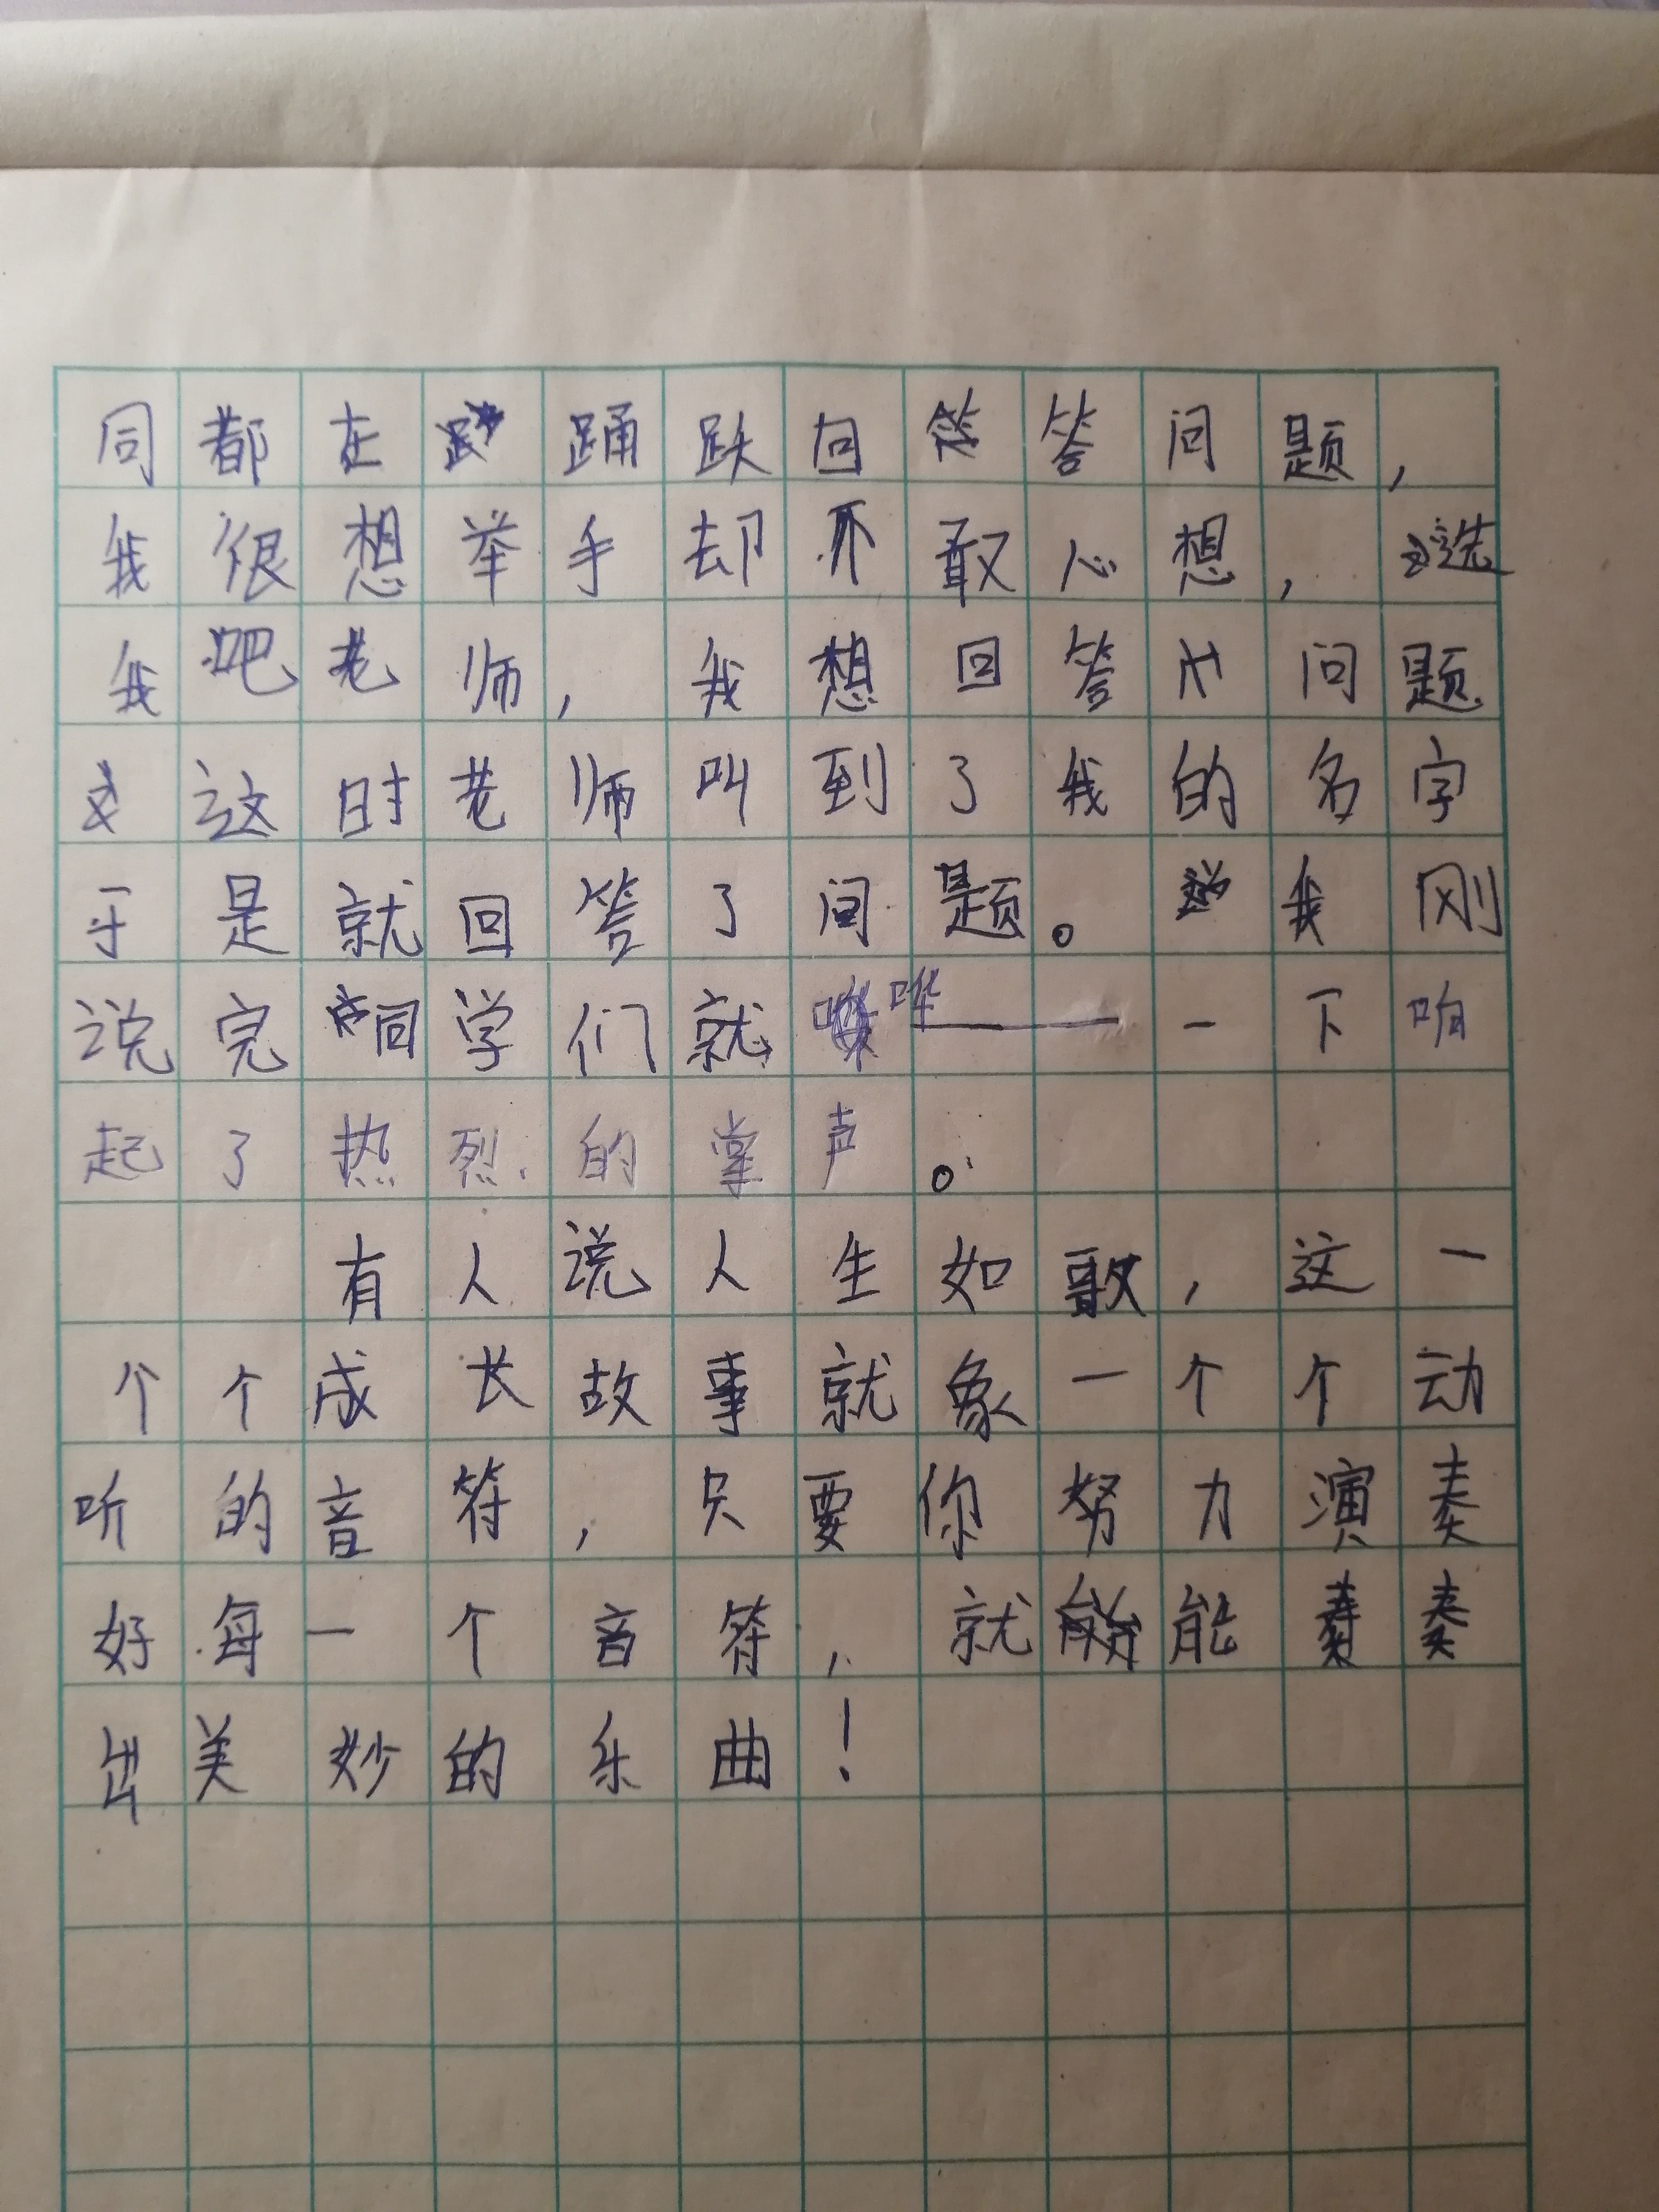 同都在踊跃回答问题，
我很想举手却不敢心想，选
我吧老师，我想回答问题
这时老师叫到了我的名字
于是就回答了问题。我刚
说完同学们就哗——一下响
起了热烈的掌声。
有人说人生如歌，这一
个个成长故事就象一个个动
听的音符，只要你努力演奏
好每一个音符，就能奏
出美妙的乐曲！